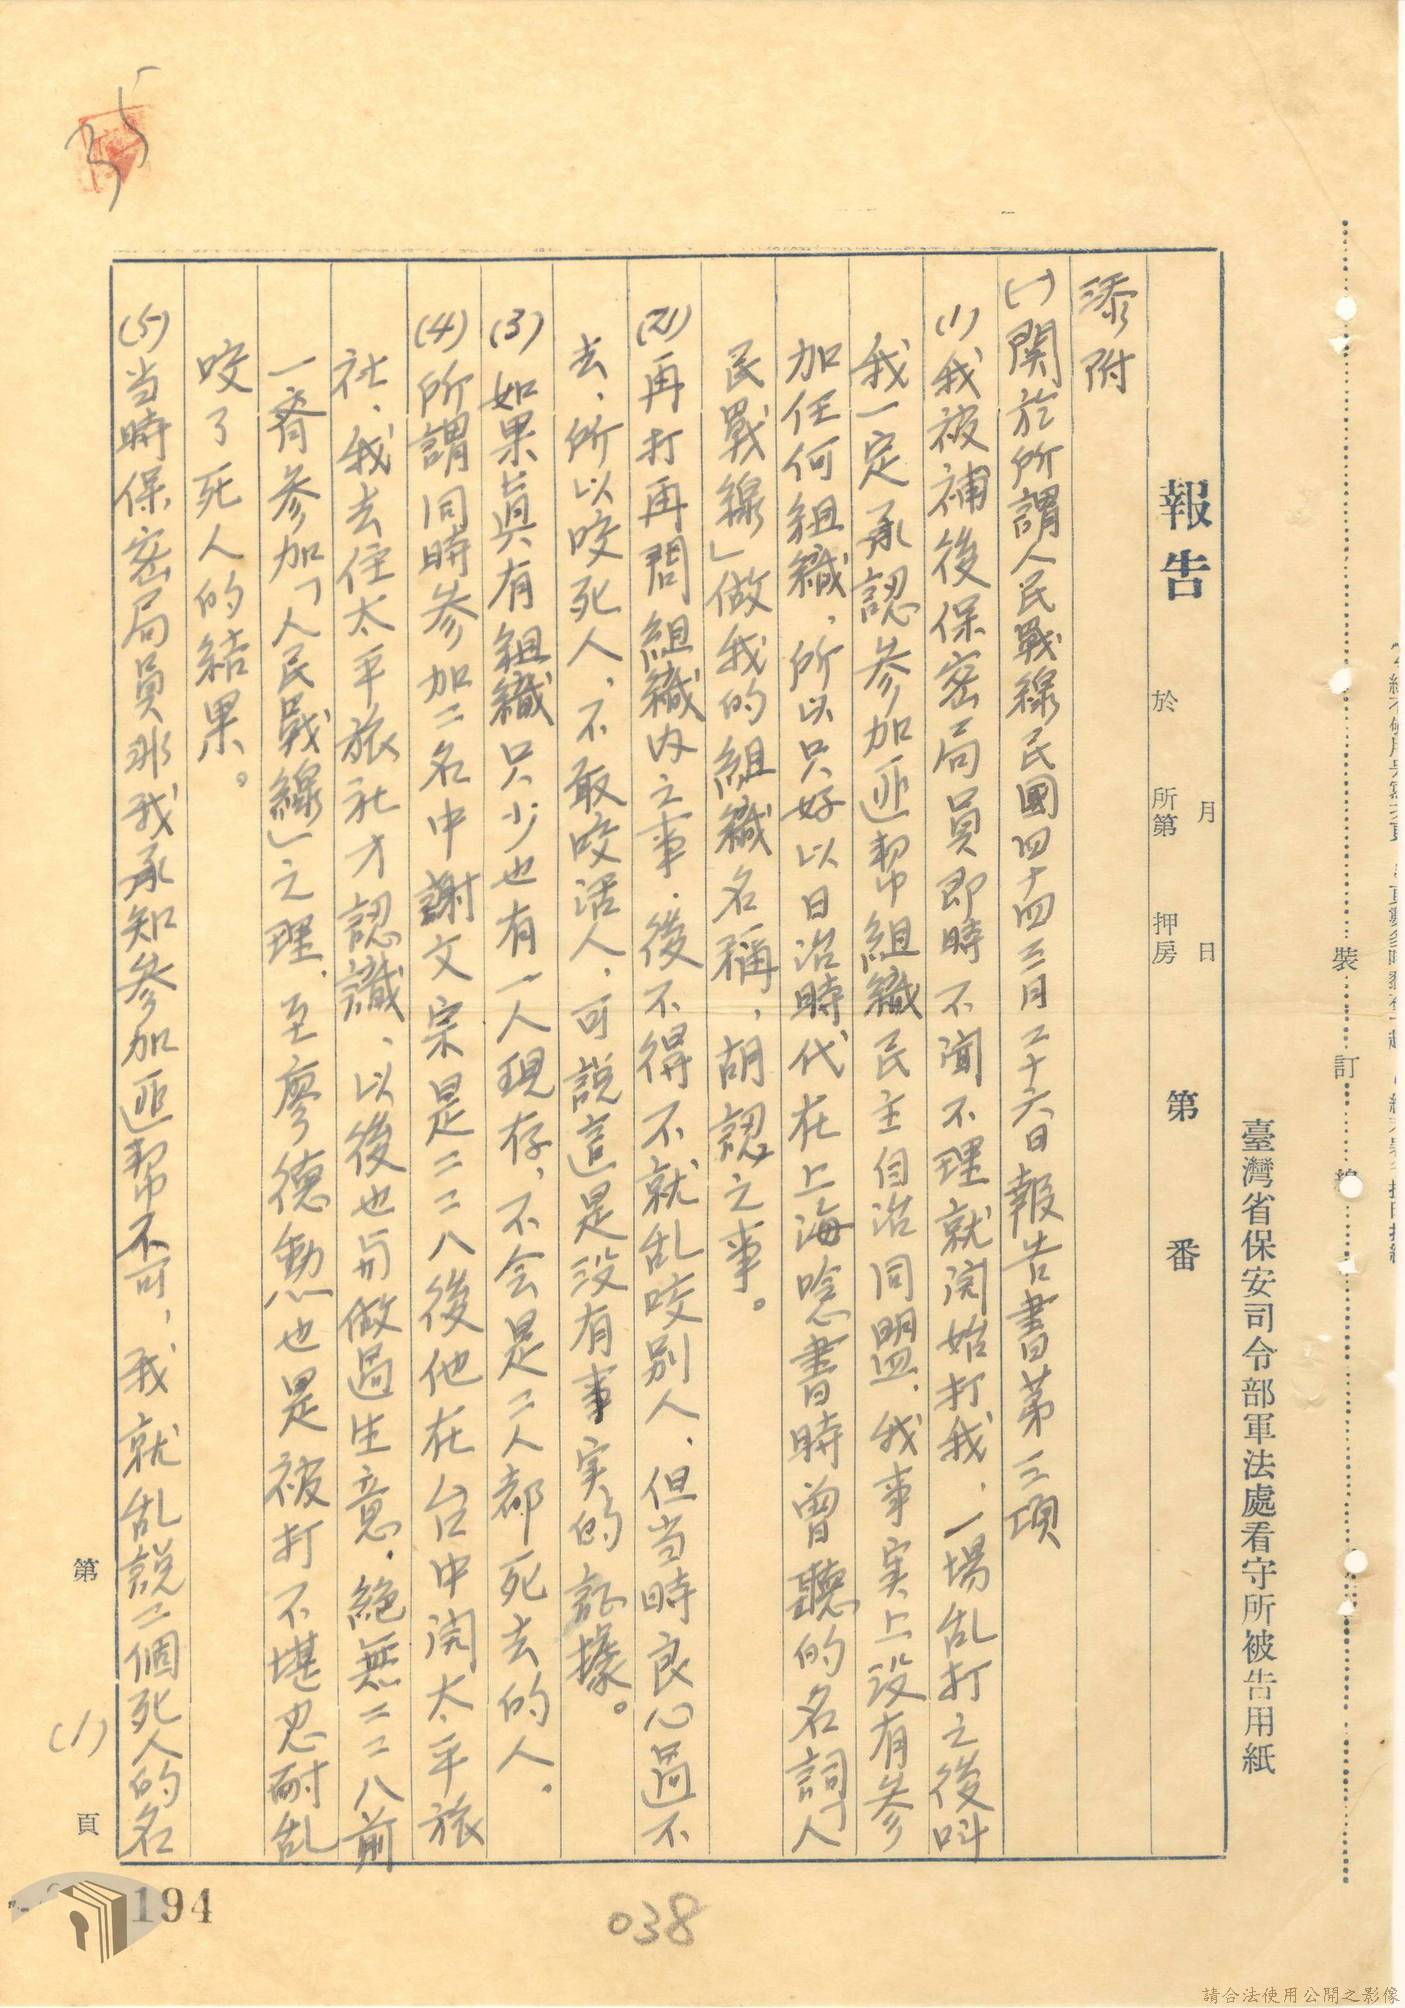 臺灣省保安司令部軍法處看守所被告用紙
報告 於 所第 押房 月 日 第 番
裝 訂 線
添附
(一)関於所謂人民戰線民國四十四三月二十六日報告書第三項
(1)我被補後保密局員即時不聞不理就関始打我、一場乱打之後叫
我一定承認參加匪幇組織民主自治同盟、我事実上没有參
加任何組織、所以只好以日治時代在上海唸書時曾聽的名詞「人
民戰線」做我的組織名稱，胡認之事。
(2)再打再問組織内之事、後不得不就乱咬別人、但当時良心過不
去、所以咬死人、不敢咬活人、可說這是没有事实的証據。
(3)如果真有組織只少也有一人現存，不会是二人都死去的人。
(4)所謂同時參加二名中謝文宗是二二八後他在台中関太平旅
社、我去住太平旅社才認識、以後也与做過生意、絶無二二八前
一齊參加「人民戰線」之理、至廖德勳也是被打不堪忍耐乱
咬了死人的結果。
(5)当時保密局員非我承知參加匪幇不可，我就乱説二個死人的名
第 (1) 頁
35
194
038
請合法使用公開之影像